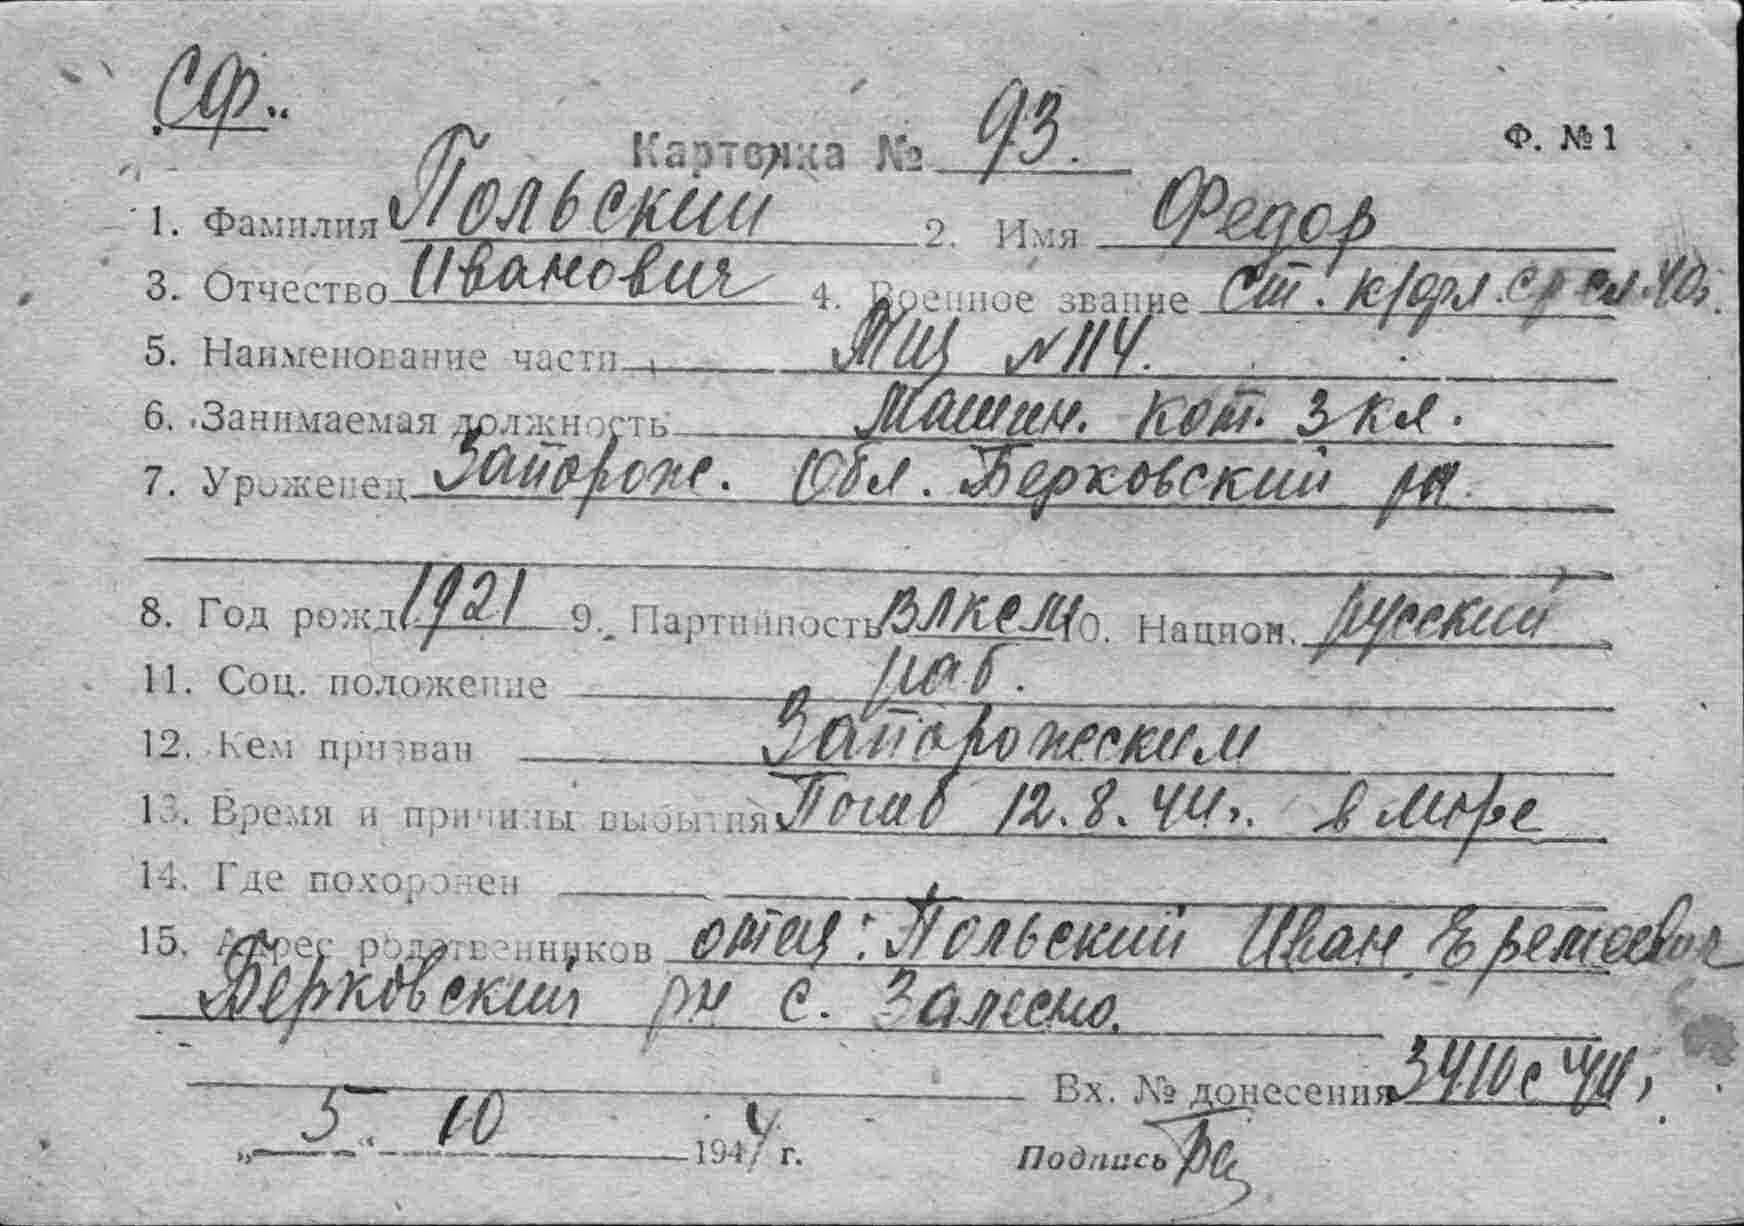 СФ..
Карточка № 93.
Ф. №1
1. Фамилия Польский 2. Имя Федор
3. Отчество Иванович 4. Военное звание ст. к/фл. ср сл. 40г.
5. Наименование части Тщ №114.
6. Занимаемая должность машин. кот. 3 кл.
7. Уроженец Запорож. Обл. Берковский рн
8. Год рожд. 1921 9. Партийность ВЛКСМ 10. Национ. русский
11. Соц. положение раб.
12. Кем призван Запорожеским
13. Время и причины выбытия Погиб 12.8.44г. в море
14. Где похоронен
15. Адрес родственников отец: Польский Иван Еремеевич
Берковский рн с.
Вх. № донесения 3410с 44г.
„ 5 “ 10 1944 г. Подпись